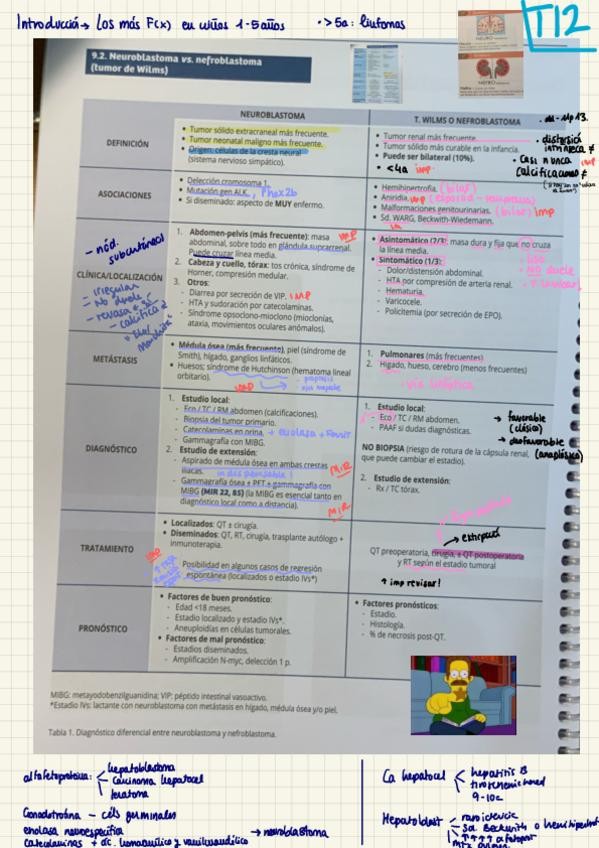 Introducció → Los más F(x) en niños 1-5 años · > 5a: linfomas
T12
NEURO
NEFRO
9.2. Neuroblastoma vs. nefroblastoma
(tumor de Wilms)
NEUROBLASTOMA
T. WILMS O NEFROBLASTOMA
DEFINICIÓN
• Tumor sólido extracraneal más frecuente.
• Tumor neonatal maligno más frecuente.
• Origen: células de la cresta neural
(sistema nervioso simpático).
• Tumor renal más frecuente.
• Tumor sólido más curable en la infancia.
• Puede ser bilateral (10%).
• <4a imp
• distorsión
intrínseca ≠
• Casi nunca imp
calcificaciones ≠
ASOCIACIONES
• Delección cromosoma 1.
• Mutación gen ALK, Phox2b
• Si diseminado: aspecto de MUY enfermo.
• Hemihipertrofia. (bilat)
• Aniridia. imp
• Malformaciones genitourinarias. (bilat) imp
• Sd. WARG, Beckwith-Wiedemann.
CLÍNICA/LOCALIZACIÓN
- nód.
subcutáneos
- irregular
- No duele
- calcifica
1. Abdomen-pelvis (más frecuente): masa imp
abdominal, sobre todo en glándula suprarrenal.
Puede cruzar línea media.
2. Cabeza y cuello, tórax: tos crónica, síndrome de
Horner, compresión medular.
3. Otros:
- Diarrea por secreción de VIP. imp
- HTA y sudoración por catecolaminas.
- Síndrome opsoclono-mioclono (mioclonías,
ataxia, movimientos oculares anómalos).
• Asintomático (2/3): masa dura y fija que no cruza
la línea media.
• Sintomático (1/3):
- Dolor/distensión abdominal.
- HTA por compresión de arteria renal.
- Hematuria.
- Varicocele.
- Policitemia (por secreción de EPO).
- liso
- NO duele
METÁSTASIS
• Médula ósea (más frecuente), piel (síndrome de
Smith), hígado, ganglios linfáticos.
• Huesos; síndrome de Hutchinson (hematoma lineal
orbitario).
imp
1. Pulmonares (más frecuentes)
2. Hígado, hueso, cerebro (menos frecuentes)
- via linfática
DIAGNÓSTICO
1. Estudio local:
- Eco / TC / RM abdomen (calcificaciones).
- Biopsia del tumor primario.
- Catecolaminas en orina. + enolasa + Ferrit
- Gammagrafía con MIBG.
2. Estudio de extensión:
- Aspirado de médula ósea en ambas crestas
ilíacas. indispensable! MIR
- Gammagrafía ósea ± PET ± gammagrafía con
MIBG (MIR 22, 85) (la MIBG es esencial tanto en
diagnóstico local como a distancia). MIR
1. Estudio local:
- Eco / TC / RM abdomen.
- PAAF si dudas diagnósticas.
→ favorable
(clásico)
→ desfavorable
(anaplásico)
NO BIOPSIA (riesgo de rotura de la cápsula renal,
que puede cambiar el estadio).
2. Estudio de extensión:
- Rx / TC tórax.
TRATAMIENTO
• Localizados: QT ± cirugía.
• Diseminados: QT, RT, cirugía, trasplante autólogo +
inmunoterapia.
imp
Posibilidad en algunos casos de regresión
espontánea (localizados o estadio IVs*)
QT preoperatoria, cirugía, ± QT postoperatoria
y RT según el estadio tumoral
↑ imp revisar!
PRONÓSTICO
• Factores de buen pronóstico:
- Edad <18 meses.
- Estadio localizado y estadio IVs*.
- Aneuploidías en células tumorales.
• Factores de mal pronóstico:
- Estadios diseminados.
- Amplificación N-myc, delección 1 p.
• Factores pronósticos:
- Estadio.
- Histología.
- % de necrosis post-QT.
MIBG: metayodobenzilguanidina; VIP: péptido intestinal vasoactivo.
*Estadio IVs: lactante con neuroblastoma con metástasis en hígado, médula ósea y/o piel.
Tabla 1. Diagnóstico diferencial entre neuroblastoma y nefroblastoma.
alfafetoproteína: hepatoblastoma
carcinoma hepatocel
teratoma
Gonadotropina - céls germinales
enolasa neuroespecífica
catecolaminas + ác. homovanílico y vanilmandélico → neuroblastoma
Ca hepatocel < hepatitis B
9-10a
Hepatoblast
Sd. Beckwith o hemihipert
↑↑↑↑ alfafetopr